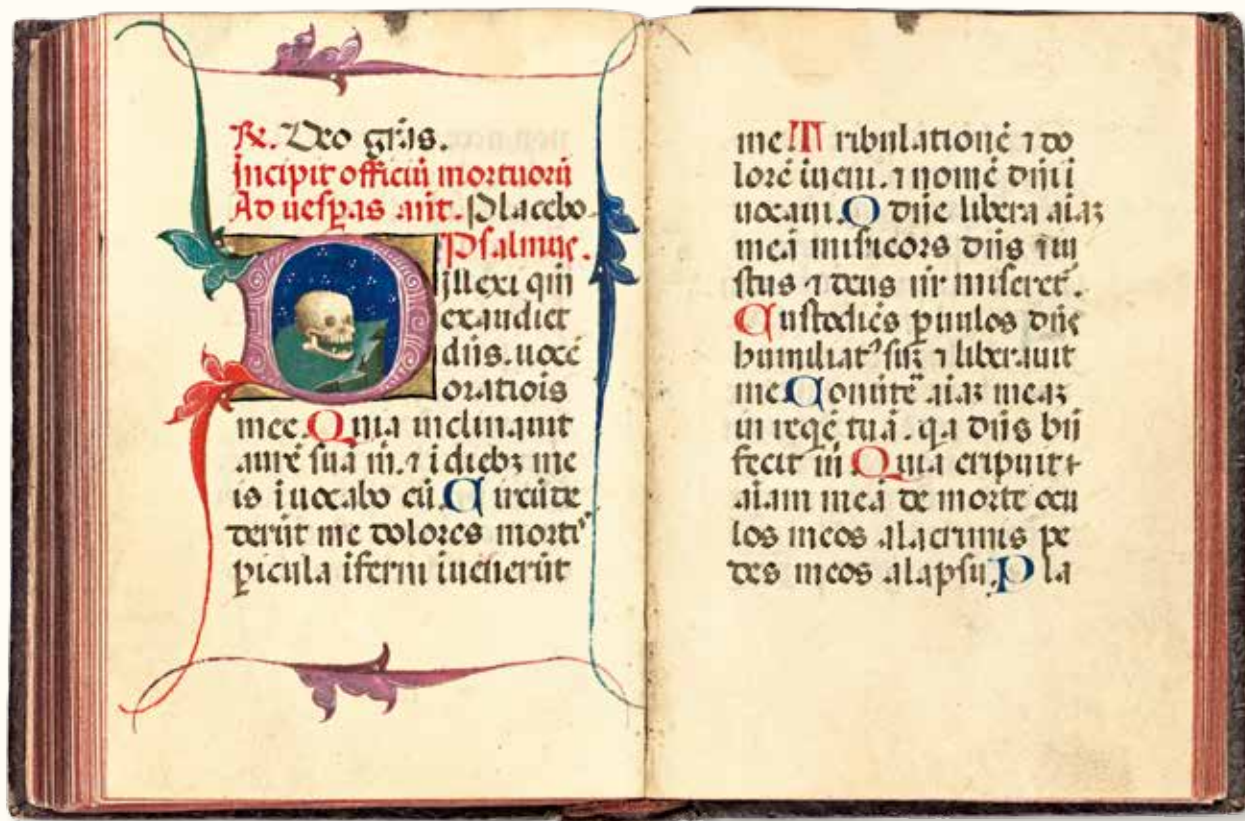 R. Deo grãs.
Incipit officiũ mortuorũ
Ad uesp̱as añt. Placebo.
Psalmus.
Dilexi qm̃
exaudiet
dñs. uocẽ
oratiõis
mee. Quia inclinauit
aurẽ suã m̃. ⁊ ĩ diebꝫ me
is ĩuocabo eũ. Circũde
derũt me dolores mortiˢ
p̱icula ĩferni ĩuenerũt
me Tribulationẽ ⁊ do
lorẽ ĩueni. ⁊ nomẽ dñi ĩ
uocaui. O dñe libera aĩaꝫ
meã misicors dñs ⁊ iu
stus ⁊ deus nr̃ miseret᷑.
Custodiẽs p̱uulos dñs
humiliatꝰ suꝫ ⁊ liberauit
me Conũte aĩaꝫ meaꝫ
in reqẽ tuã. qa dñs bñ
fecit m̃ Quia eripuit
aĩam meã de morte ocu
los meos alacrimis pe
des meos alapsu. Pla